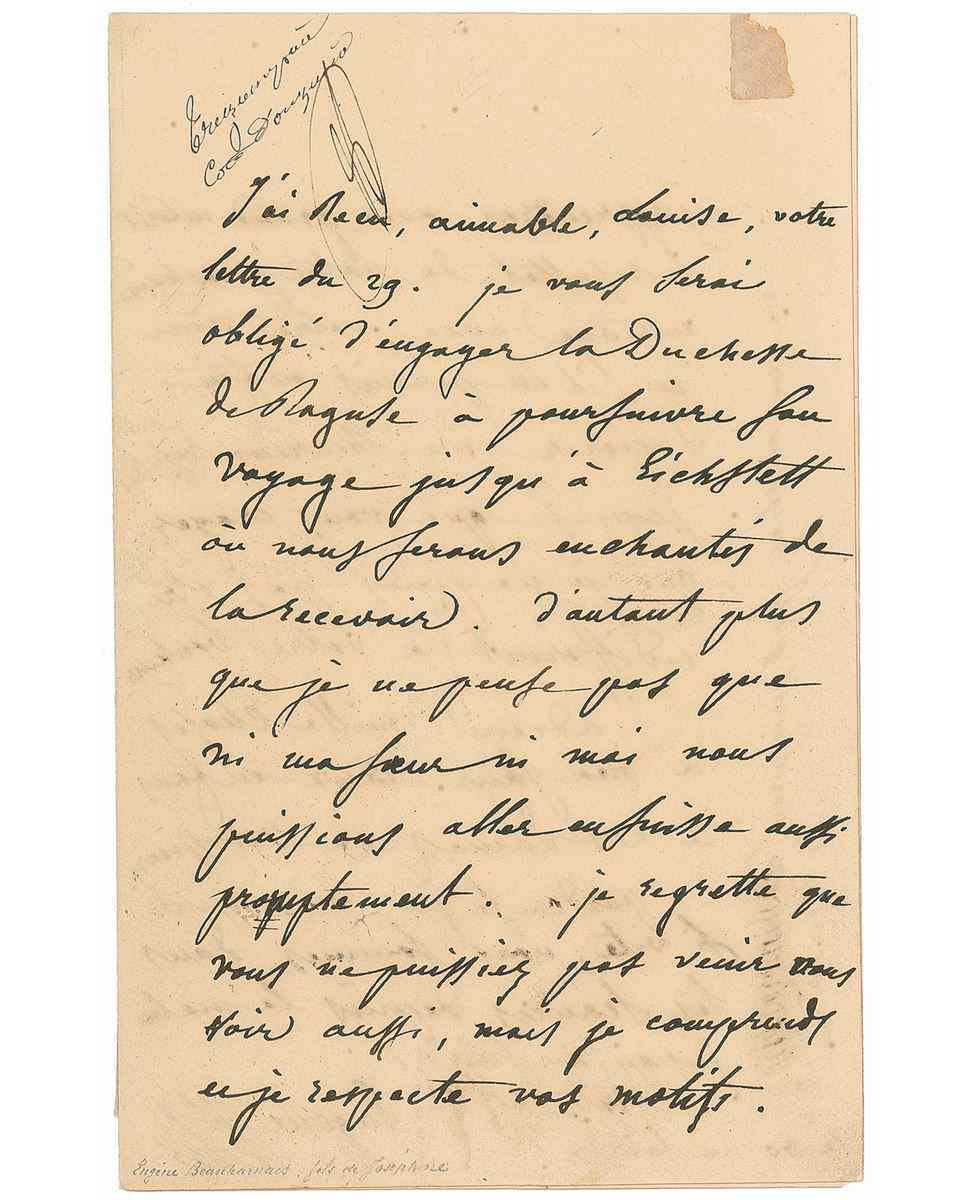 J'ai Recu, aimable, Louise, votre
lettre du 29. je vous serai
obligé d'engager la Duchesse
de Raguse à poursuivre son
voyage jusqu'à Eichstett
où nous serons enchantés de
la recevoir. d'autant plus
que je ne pense pas que
ni ma sœur ni moi nous
puissions aller en suisse aussi
promptement. je regrette que
vous ne puissiez pas venir nous
voir aussi, mais je comprends
et je respecte vos motifs.
Eugène Beauharnais. fils de Joséphine